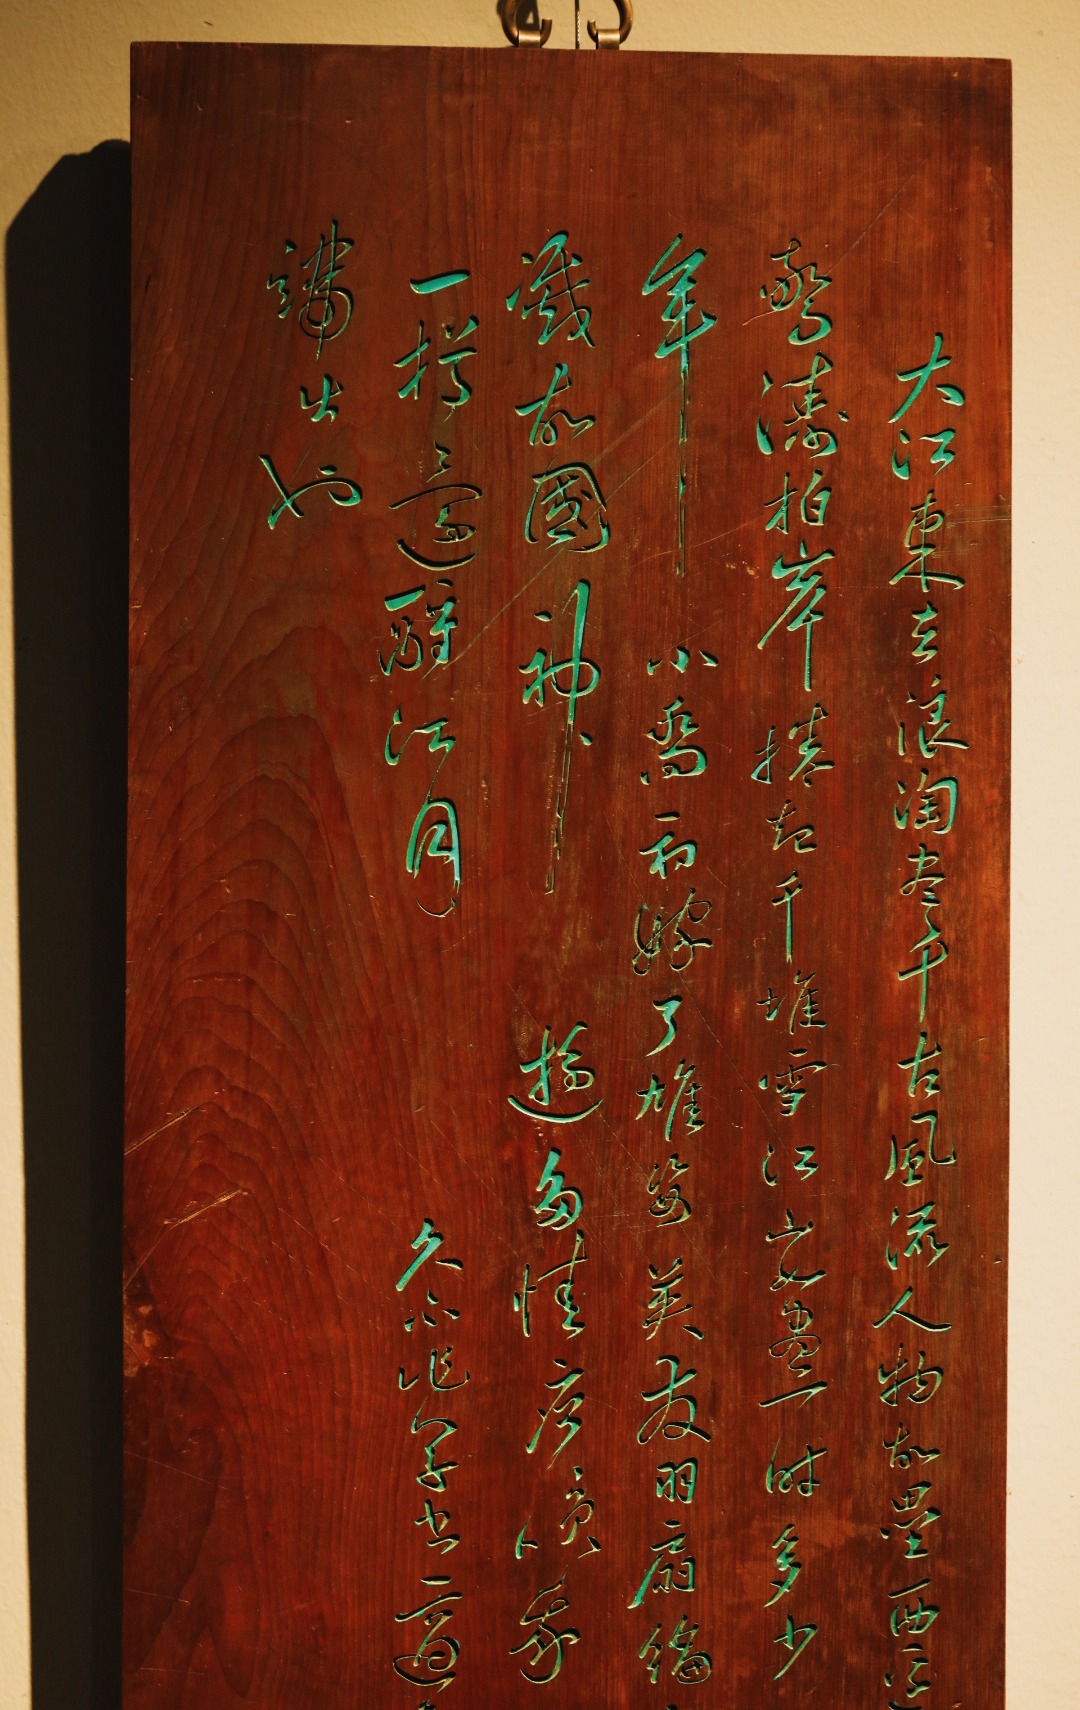 大江東去浪淘盡千古風流人物故壘西邊
驚濤拍岸捲起千堆雪江山如畫一時多少
年小喬初嫁了雄姿英發羽扇綸
滅故國神遊多情應我
一樽還酹江月久不作草書適
端出也